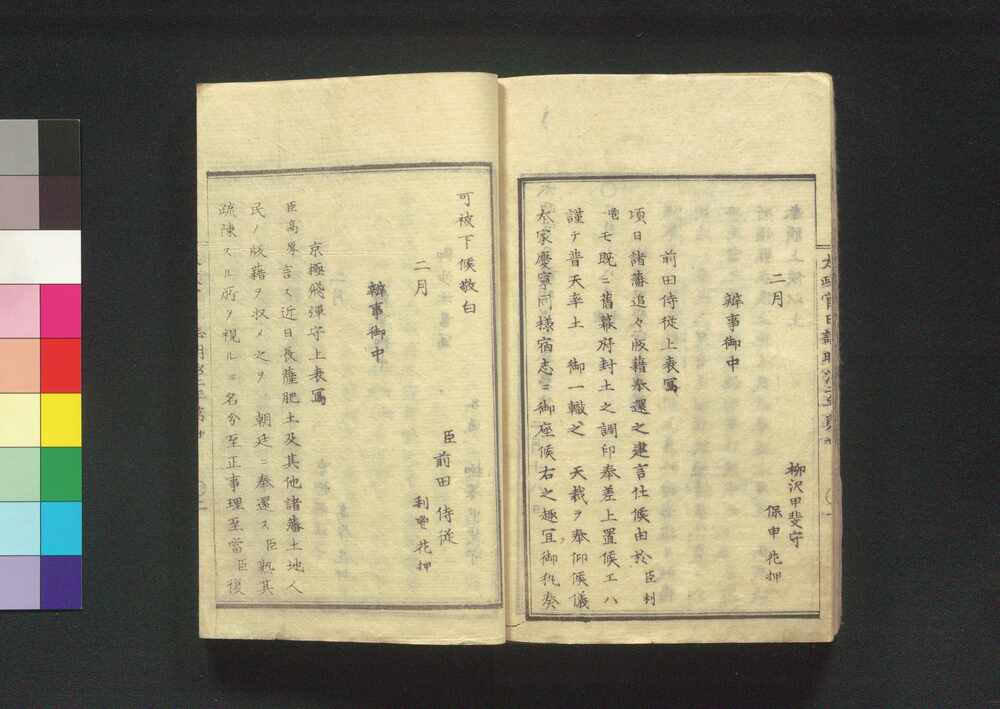 柳沢甲斐守
保申花押
二月
辨事御中
前田侍従上表寫
項日諸藩追々版藉奉還之建言仕候由於臣利
鬯モ既ニ舊幕府封土之調印奉差上置候エハ
謹テ普天率土 御一轍之 天裁ヲ奉仰候儀
本家慶寧同様宿志ニ御座候右之趣冝御執奏
可被下候敬白
臣前田侍従
利鬯花押
二月
辨事御中
京極飛彈守上表寫
臣高厚言ス近日長薩肥土及其他諸藩土地人
民ノ版藉ヲ収メ之ヲ 朝廷ニ奉還ス臣熟其
疏陳スル所ヲ視ルニ名分至正事理至當臣後